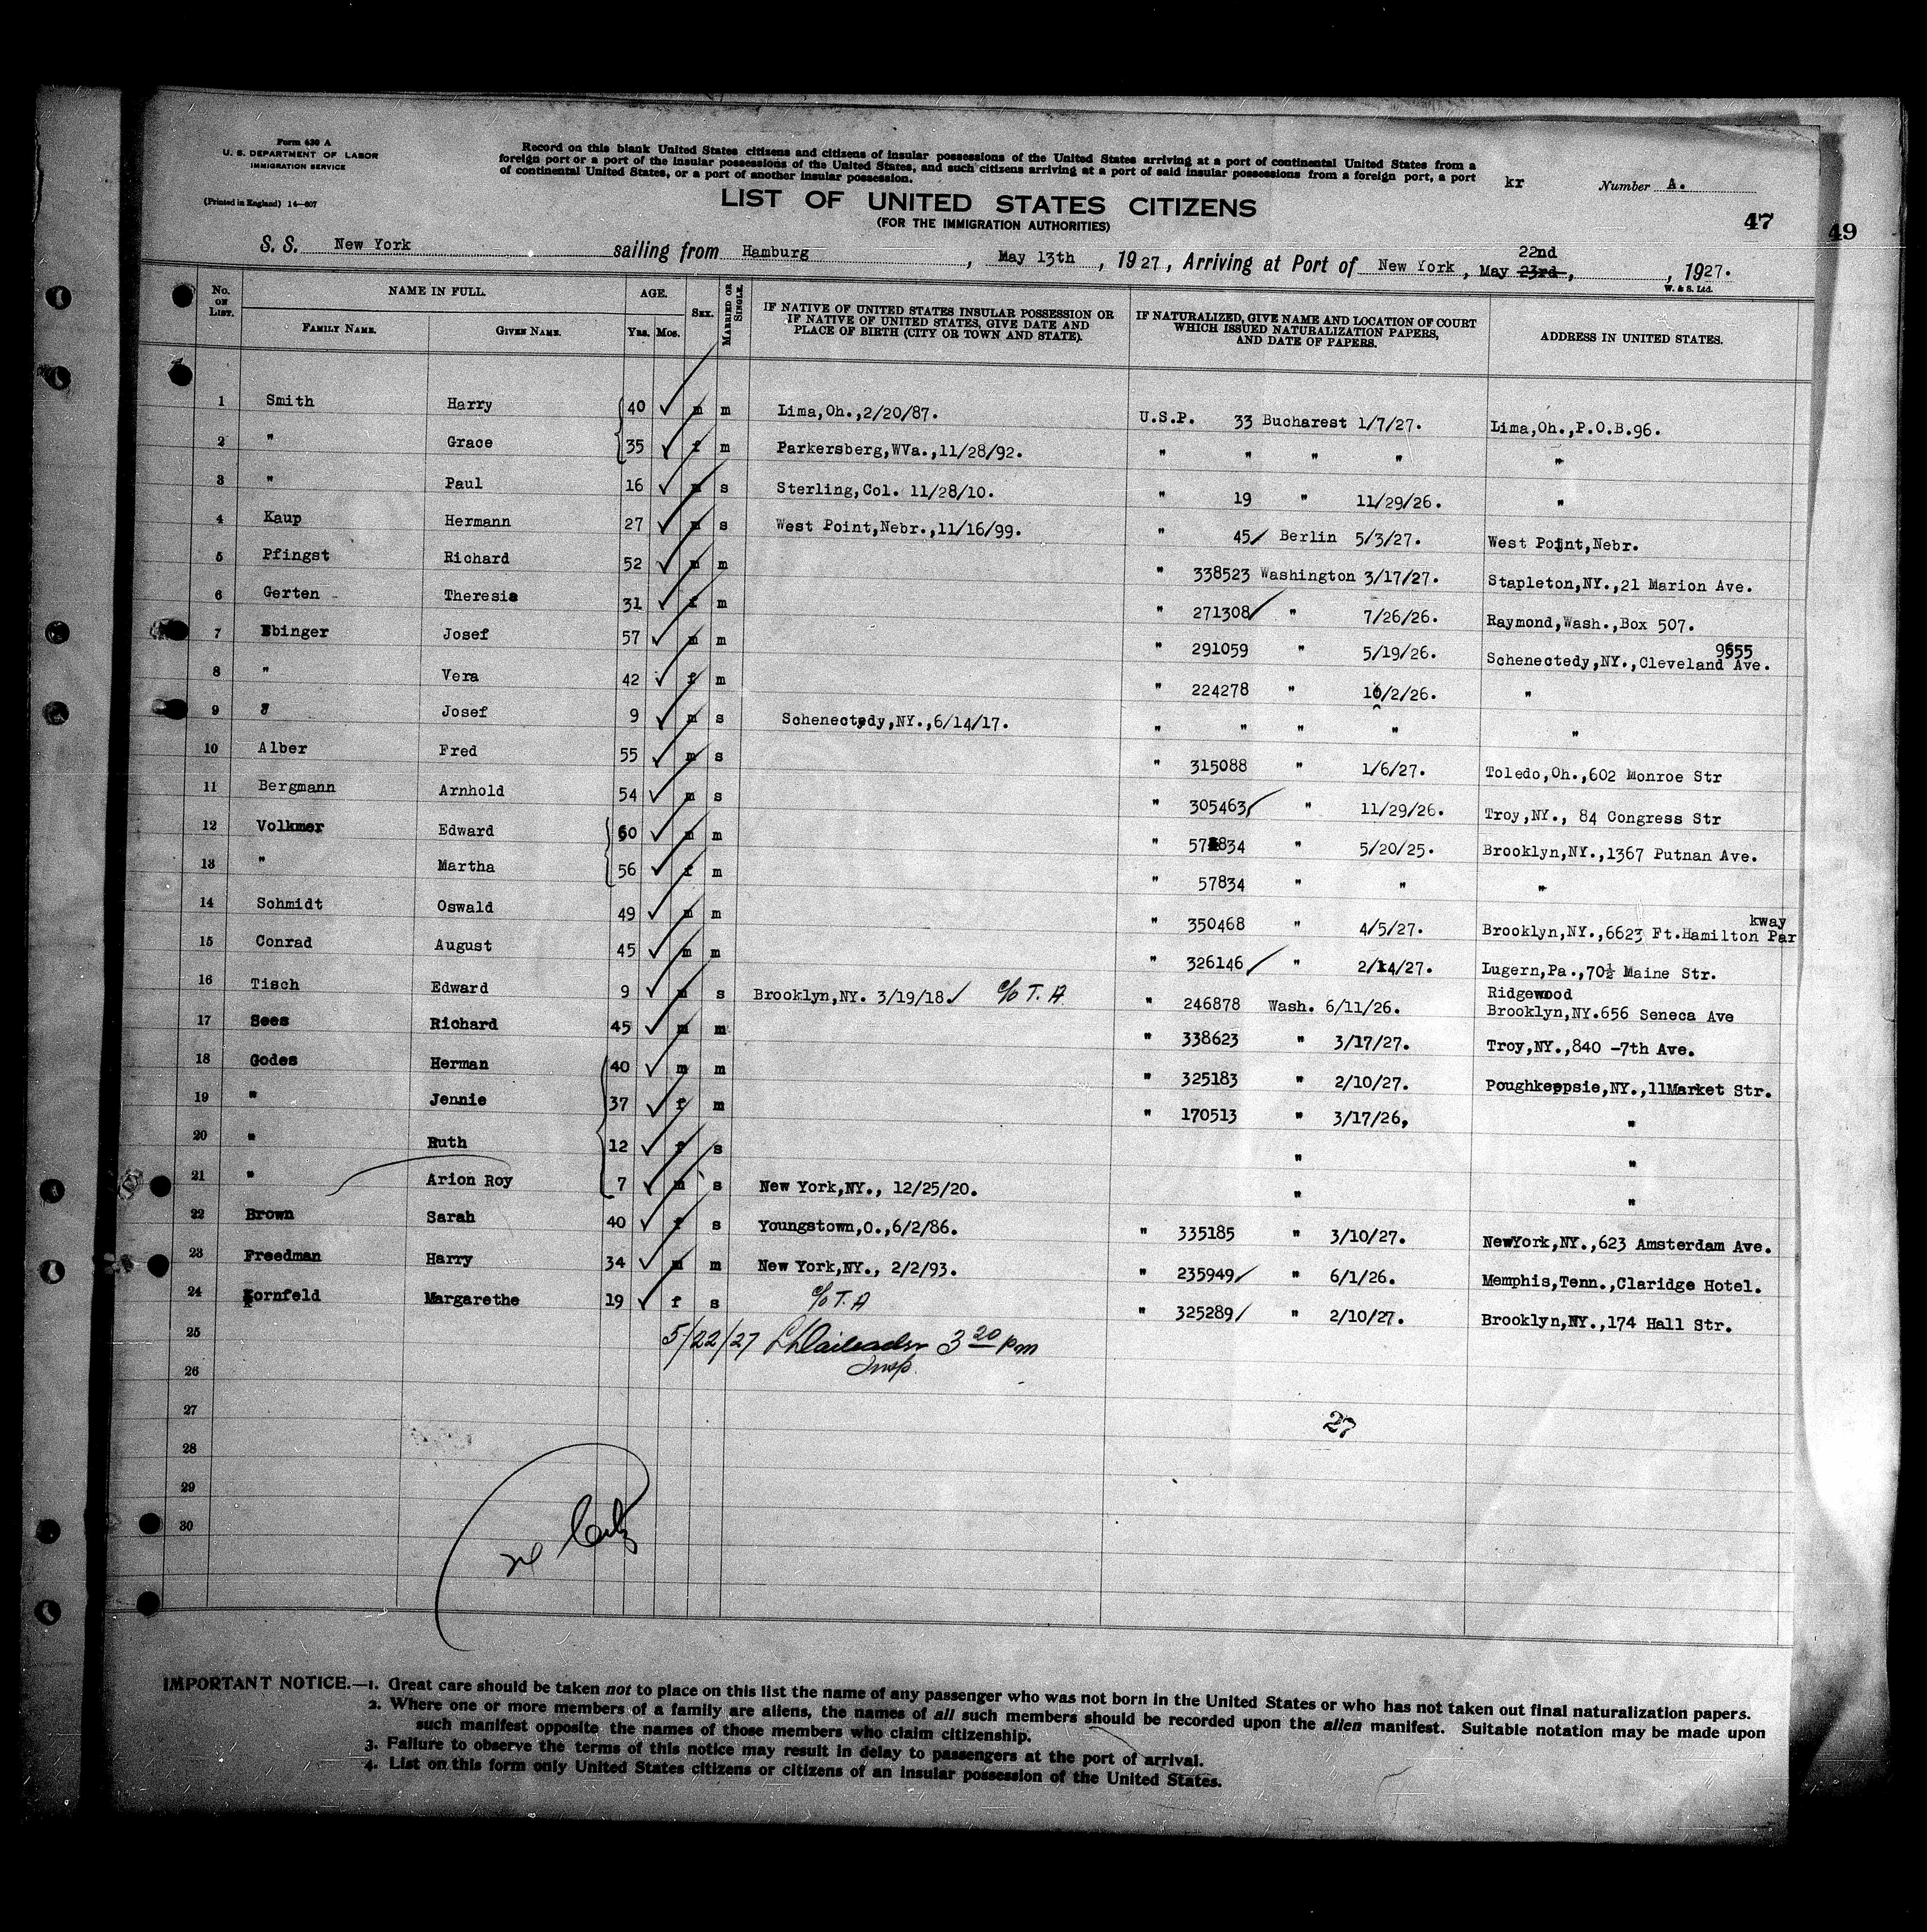 Form 630 A
U. S. DEPARTMENT OF LABOR
IMMIGRATION SERVICE
(Printed in England) 14—607
Record on this blank United States citizens and citizens of insular possessions of the United States arriving at a port of continental United States from a
foreign port or a port of the insular possessions of the United States, and such citizens arriving at a port of said insular possessions from a foreign port, a port
of continental United States, or a port of another insular possession.
kr Number A.
LIST OF UNITED STATES CITIZENS
(FOR THE IMMIGRATION AUTHORITIES)
47
49
S. S. New York sailing from Hamburg, May 13th, 1927, Arriving at Port of New York, May 23rd, 22nd, 1927.
W. & S. Ltd.
No. ON LIST. NAME IN FULL. FAMILY NAME. GIVEN NAME. AGE. Yrs. Mos. SEX. MARRIED OR SINGLE. IF NATIVE OF UNITED STATES INSULAR POSSESSION OR IF NATIVE OF UNITED STATES, GIVE DATE AND PLACE OF BIRTH (CITY OR TOWN AND STATE). IF NATURALIZED, GIVE NAME AND LOCATION OF COURT WHICH ISSUED NATURALIZATION PAPERS, AND DATE OF PAPERS. ADDRESS IN UNITED STATES.
1 Smith Harry 40 m m Lima,Oh.,2/20/87. U.S.P. 33 Bucharest 1/7/27. Lima,Oh.,P.O.B.96.
2 " Grace 35 f m Parkersberg,WVa.,11/28/92. " " " " "
3 " Paul 16 m s Sterling,Col. 11/28/10. " 19 " 11/29/26. "
4 Kaup Hermann 27 m s West Point,Nebr.,11/16/99. " 45 Berlin 5/3/27. West Point,Nebr.
5 Pfingst Richard 52 m m " 338523 Washington 3/17/27. Stapleton,NY.,21 Marion Ave.
6 Gerten Theresia 31 f m " 271308 " 7/26/26. Raymond,Wash.,Box 507.
7 Ebinger Josef 57 m m " 291059 " 5/19/26. Schenectedy,NY.,Cleveland Ave.
8 " Vera 42 f m " 224278 " 10/2/26. "
9 " Josef 9 m s Schenectedy,NY.,6/14/17. " " " " "
10 Alber Fred 55 m s " 315088 " 1/6/27. Toledo,Oh.,602 Monroe Str
11 Bergmann Arnhold 54 m s " 305463 " 11/29/26. Troy,NY., 84 Congress Str
12 Volkmer Edward 60 m m " " 5/20/25. Brooklyn,NY.,1367 Putnan Ave.
13 " Martha 56 f m " 57834 " " "
14 Schmidt Oswald 49 m m " 350468 " 4/5/27. Brooklyn,NY.,6623 Ft.Hamilton Parkway
15 Conrad August 45 m m " 326146 " 2/14/27. Lugern,Pa.,70½ Maine Str.
16 Tisch Edward 9 m s Brooklyn,NY. 3/19/18. c/o T. A " 246878 Wash. 6/11/26. Ridgewood
Brooklyn,NY.656 Seneca Ave
17 Sees Richard 45 m m " 338623 " 3/17/27. Troy,NY.,840 -7th Ave.
18 Godes Herman 40 m m " 325183 " 2/10/27. Poughkeppsie,NY.,11Market Str.
19 " Jennie 37 f m " 170513 " 3/17/26, "
20 " Ruth 12 f s " "
21 " Arion Roy 7 m s New York,NY., 12/25/20. " "
22 Brown Sarah 40 f s Youngstown,O.,6/2/86. " 335185 " 3/10/27. NewYork,NY.,623 Amsterdam Ave.
23 Freedman Harry 34 m m New York,NY., 2/2/93. " 235949 " 6/1/26. Memphis,Tenn.,Claridge Hotel.
24 Kornfeld Margarethe 19 f s c/o T. A " 325289 " 2/10/27. Brooklyn,NY.,174 Hall Str.
25 5/22/27 3 20 pm
Insp.
26
27 27
28
29
30
IMPORTANT NOTICE.—1. Great care should be taken not to place on this list the name of any passenger who was not born in the United States or who has not taken out final naturalization papers.
2. Where one or more members of a family are aliens, the names of all such members should be recorded upon the alien manifest. Suitable notation may be made upon
such manifest opposite the names of those members who claim citizenship.
3. Failure to observe the terms of this notice may result in delay to passengers at the port of arrival.
4. List on this form only United States citizens or citizens of an insular possession of the United States.